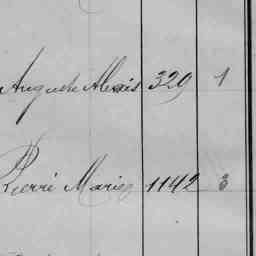 Auguste Alexis 329 1
Pierre Marie 1142 3